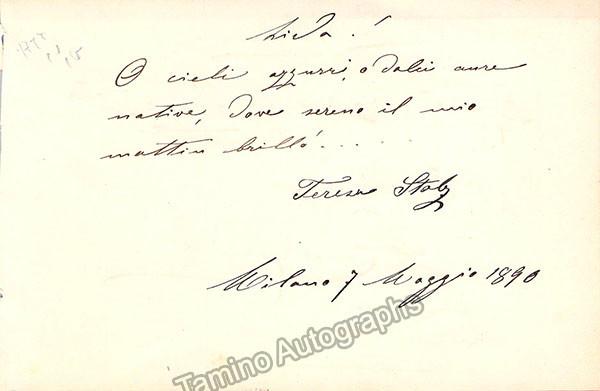 Aida!
O cieli azzurri, o dolci aure
native, dove sereno il mio
mattin brillò.....
Teresa Stolz
Milano 7 Maggio 1890
Tamino Autographs